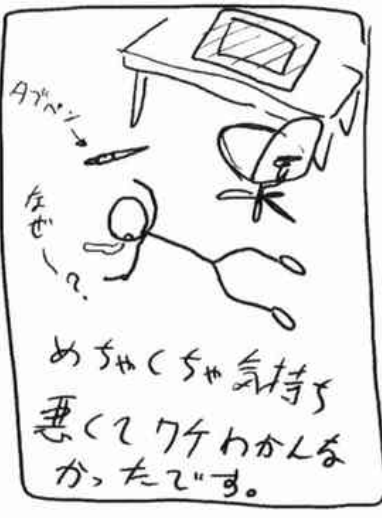 タブペン
なぜー?
めちゃくちゃ気持ち
悪くてワケわかんな
かったです。